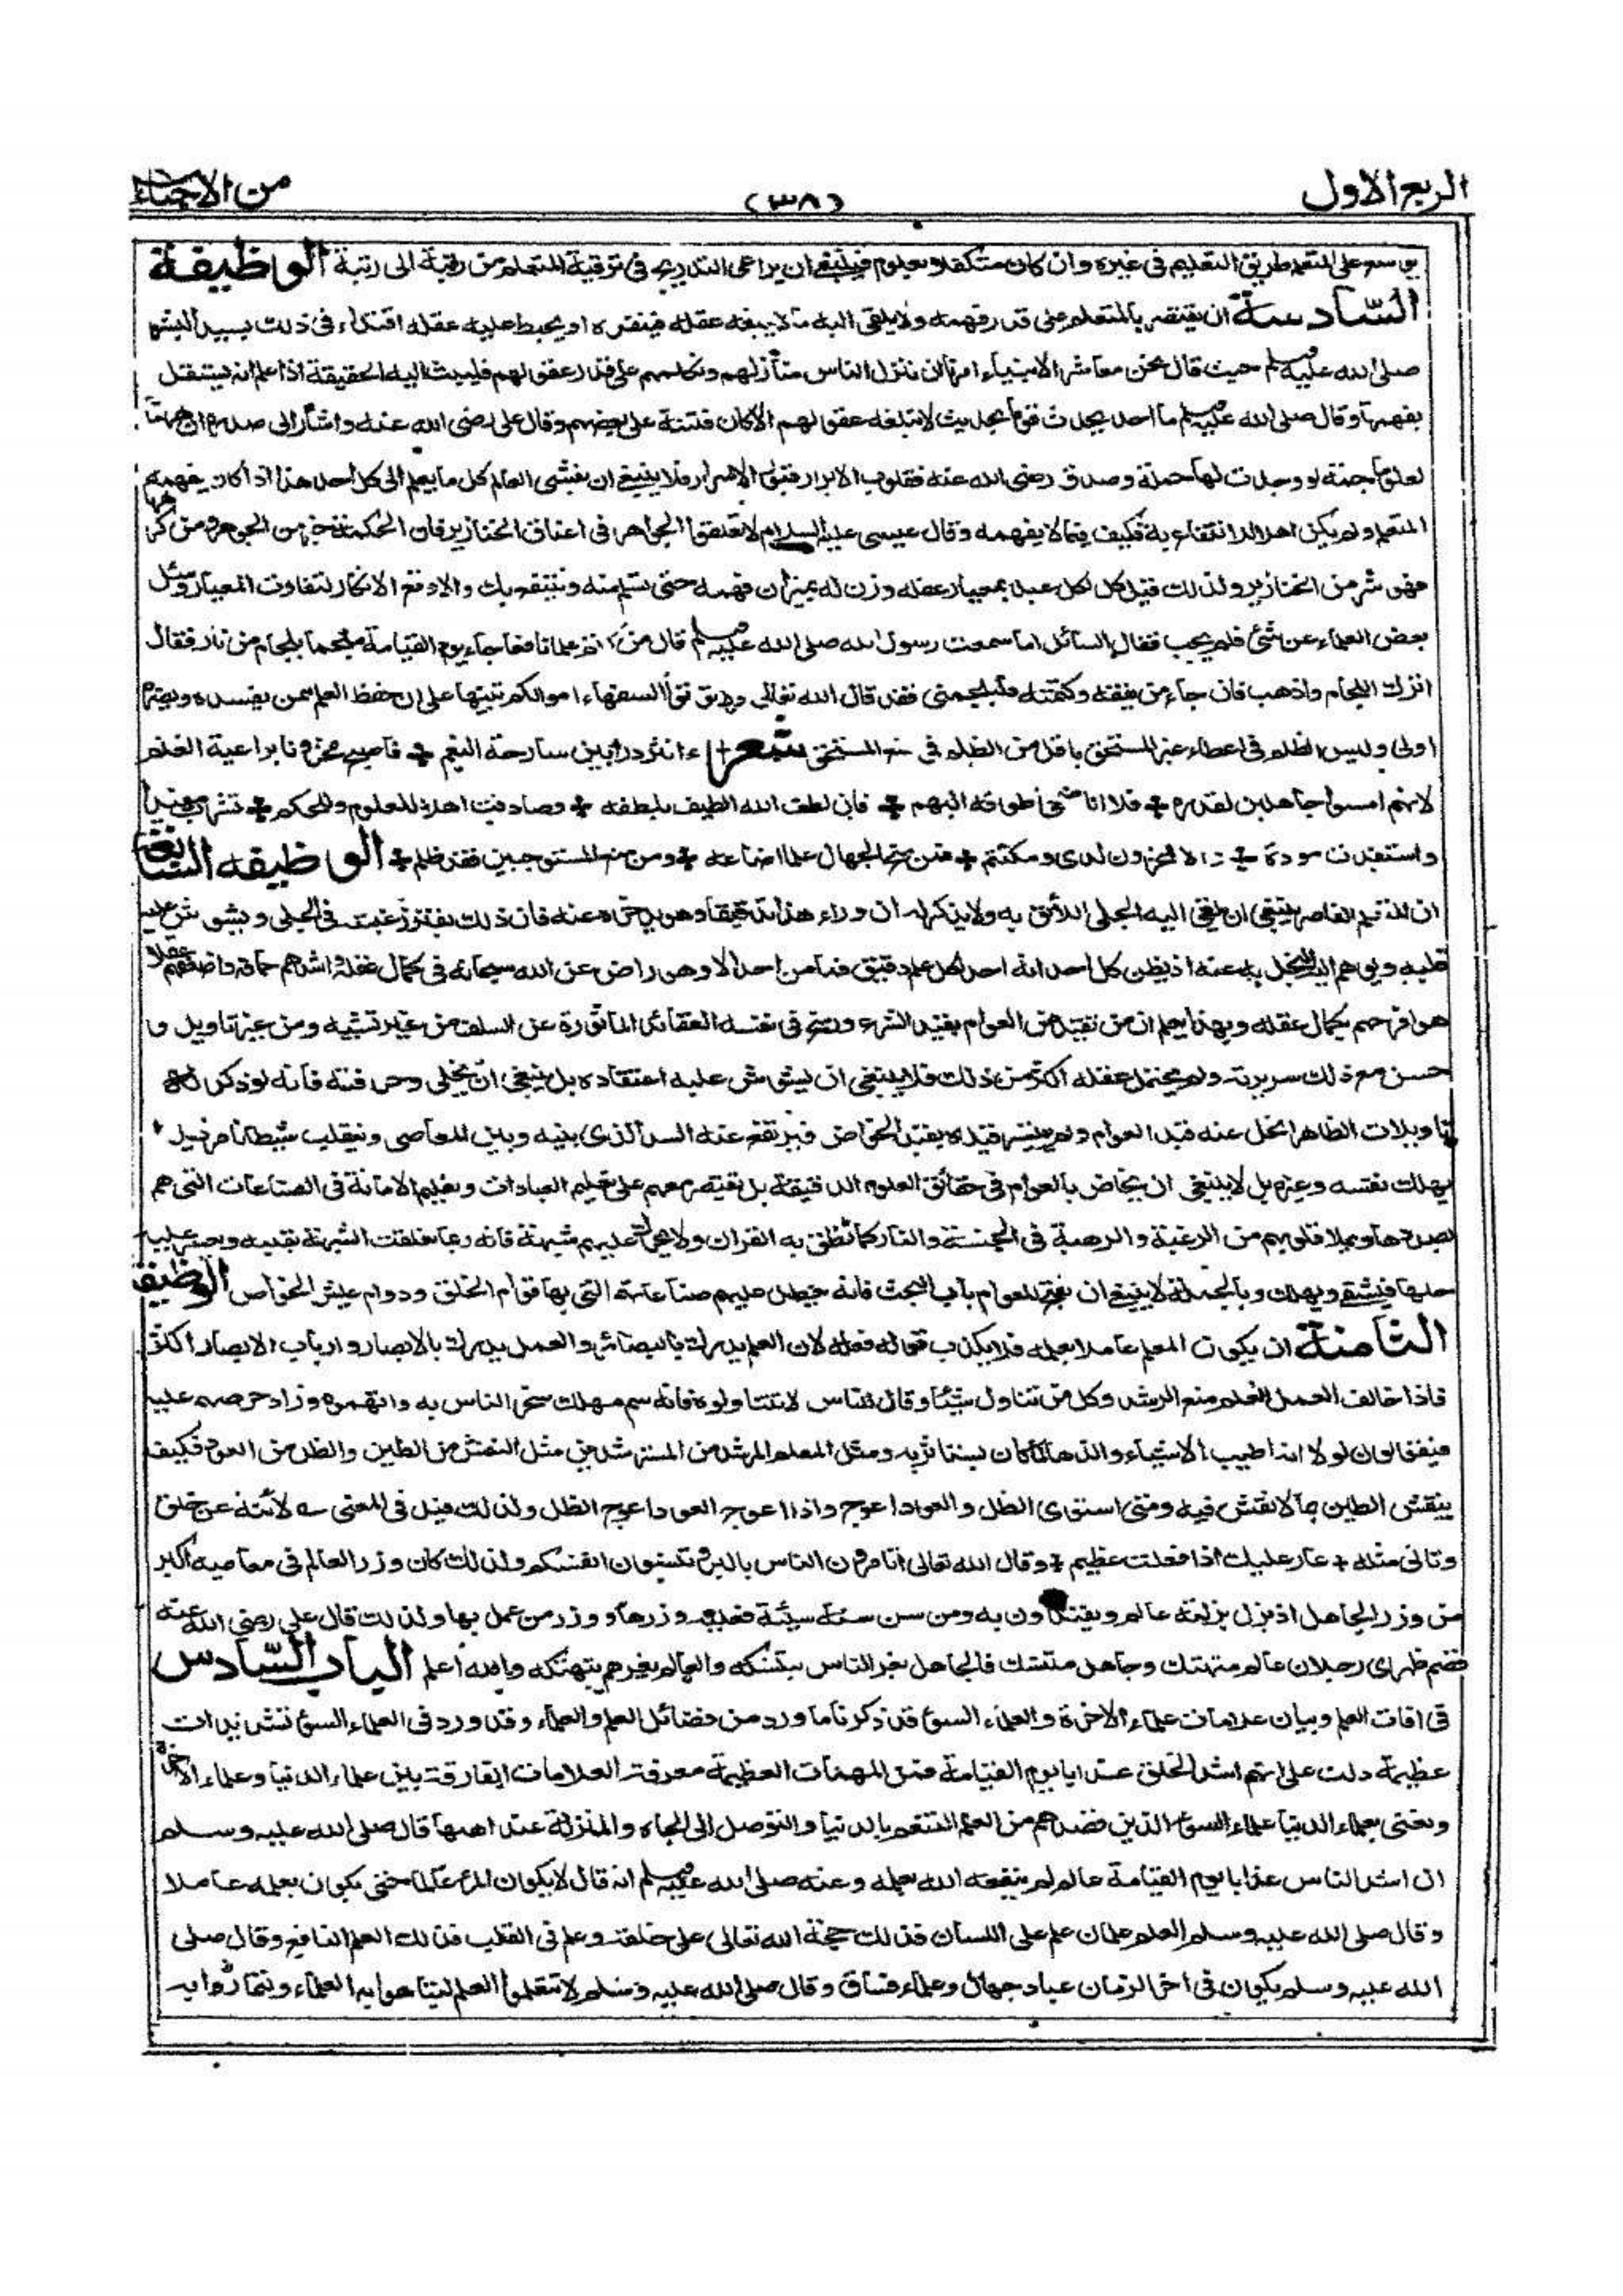 الربع الاول
(٣٨)
من الاحياء
يوسع على المتعلم طريق التعليم فى غيره وان كان متكفلا بعلوم فينبغى ان يراعى التدريج فى ترقية المتعلم من رتبة الى رتبة الوظيفة
السّادسة ان يقتصر بالمتعلم على قدر فهمه ولا يلقى اليه ما لا يبلغه عقله فينفره او يخبط عليه عقله اقتداء فى ذلك بسيد البشر
صلى الله عليه وسلم حيث قال نحن معاشر الانبياء امرنا ان ننزل الناس منازلهم ونكلمهم على قدر عقولهم فليبث اليه الحقيقة اذا علم انه يستقل
بفهمها وقال صلى الله عليه وسلم ما احد يحدث قوما بحديث لا تبلغه عقولهم الا كان فتنة على بعضهم وقال على رضى الله عنه واشار الى صدره ان ههنا
لعلوما جمة لو وجدت لها حملة وصدق رضى الله عنه فقلوب الابرار قبور الاسرار فلا ينبغى ان يفشى العالم كل ما يعلم الى كل احد هذا اذا كان يفهمه
المتعلم ولم يكن اهلا للانتفاع به فكيف فيما لا يفهمه وقال عيسى عليه السلام لا تعلقوا الجواهر فى اعناق الخنازير فان الحكمة خير من الجوهر ومن كرهها
فهو شر من الخنازير ولذلك قيل كل لكل عبد بمعيار عقله وزن له بميزان فهمه حتى تسلم منه وينتفع بك والا وقع الانكار لتفاوت المعيار وسئل
بعض العلماء عن شئ فلم يجب فقال السائل اما سمعت رسول الله صلى الله عليه وسلم قال من كتم علما نافعا جاء يوم القيامة ملجما بلجام من نار فقال
اترك اللجام واذهب فان جاء من يفقه وكتمته فليلجمنى فقد قال الله تعالى ولا تؤتوا السفهاء اموالكم تنبيها على ان حفظ العلم ممن يفسده ويضره
اولى وليس الظلم فى اعطاء غير المستحق باقل من الظلم فى منع المستحق شعر ءانثر درا بين سارحة النعم + فاصبح مخزونا براعية الغنم
لانهم امسوا جاهلين لقدره + فلا انا اضحى اطوقه البهم + فان لطف الله اللطيف بلطفه + وصادفت اهلا للعلوم وللحكم + نشرت مفيدا
واستفدت مودة + والا فمخزون لدى ومكتتم + فمن منح الجهال علما اضاعه + ومن منع المستوجبين فقد ظلم + الوظيفه السّابعة
ان المتعلم القاصر ينبغى ان يلقى اليه الجلى اللائق به ولا يذكر له ان وراء هذا تدقيقا وهو يدخره عنه فان ذلك يفتر رغبته فى الجلى ويشوش عليه
قلبه ويوهم اليه البخل به عنه اذ يظن كل احد انه اهل لكل علم دقيق فما من احد الا وهو راض عن الله سبحانه فى كمال عقله واشدهم حماقة واضعفهم عقلا
هو افرحهم بكمال عقله وبهذا يعلم ان من تقيد من العوام بقيد الشرع ورسخ فى نفسه العقائد الماثورة عن السلف من غير تشبيه ومن غير تاويل و
حسن مع ذلك سريرته ولم يحتمل عقله اكثر من ذلك فلا ينبغى ان يشوش عليه اعتقاده بل ينبغى ان يخلى وحرفته فانه لو ذكر له
تاويلات الظاهر انحل عنه قيد العوام ولم يتيسر قيده بقيد الخواص فيرتفع عنه السد الذى بينه وبين المعاصى وينقلب شيطانا مريدا
يهلك نفسه وغيره بل لا ينبغى ان يخاض بالعوام فى حقائق العلوم الدقيقة بل يقتصر معهم على تعليم العبادات وتعليم الامانة فى الصناعات التى هم
بصددها ويملا قلوبهم من الرغبة والرهبة فى الجنة والنار كما نطق به القران ولا يحرك عليهم شبهة فانه ربما تعلقت الشبهة بقلبه ويعسر عليه
حلها فيشقى ويهلك وبالجملة لا ينبغى ان يفتح للعوام باب البحث فانه يعطل عليهم صناعاتهم التى بها قوام الخلق ودوام عيش الخواص الوظيفة
الثامنة ان يكون المعلم عاملا بعلمه فلا يكذب قوله فعله لان العلم يدرك بالبصائر والعمل يدرك بالابصار وارباب الابصار اكثر
فاذا خالف العمل العلم منع الرشد وكل من تناول شيئا وقال للناس لا تتناولوه فانه سم مهلك سخر الناس به واتهموه وزاد حرصهم عليه
فيقولون لولا انه اطيب الاشياء والذها لما كان يستاثر به ومثل المعلم المرشد من المسترشدين مثل النقش من الطين والظل من العود فكيف
ينقش الطين بما لا نقش فيه ومتى استوى الظل والعود اعوج واذا اعوج العود اعوج الظل ولذلك قيل فى المعنى لا تنه عن خلق
وتاتى مثله + عار عليك اذا فعلت عظيم + وقال الله تعالى اتامرون الناس بالبر وتنسون انفسكم ولذلك كان وزر العالم فى معاصيه اكبر
من وزر الجاهل اذ يزل بزلته عالم ويقتدون به ومن سن سنة سيئة فعليه وزرها ووزر من عمل بها ولذلك قال على رضى الله عنه
قصم ظهرى رجلان عالم متهتك وجاهل متنسك فالجاهل يغر الناس بتنسكه والعالم يغرهم بتهتكه والله اعلم الباب السّادس
فى افات العلم وبيان علامات علماء الاخرة والعلماء السوء قد ذكرنا ما ورد من فضائل العلم والعلماء وقد ورد فى العلماء السوء تشديدات
عظيمة دلت على انهم اشد الخلق عذابا يوم القيامة فمن المهمات العظيمة معرفة العلامات الفارقة بين علماء الدنيا وعلماء الاخرة
ونعنى بعلماء الدنيا علماء السوء الذين قصدهم من العلم التنعم بالدنيا والتوصل الى الجاه والمنزلة عند اهلها قال صلى الله عليه وسلم
ان اشد الناس عذابا يوم القيامة عالم لم ينفعه الله بعلمه وعنه صلى الله عليه وسلم انه قال لا يكون المرء عالما حتى يكون بعلمه عاملا
وقال صلى الله عليه وسلم العلم علمان علم على اللسان فذلك حجة الله تعالى على خلقه وعلم فى القلب فذلك العلم النافع وقال صلى
الله عليه وسلم يكون فى اخر الزمان عباد جهال وعلماء فساق وقال صلى الله عليه وسلم لا تتعلموا العلم لتباهوا به العلماء وتماروا به